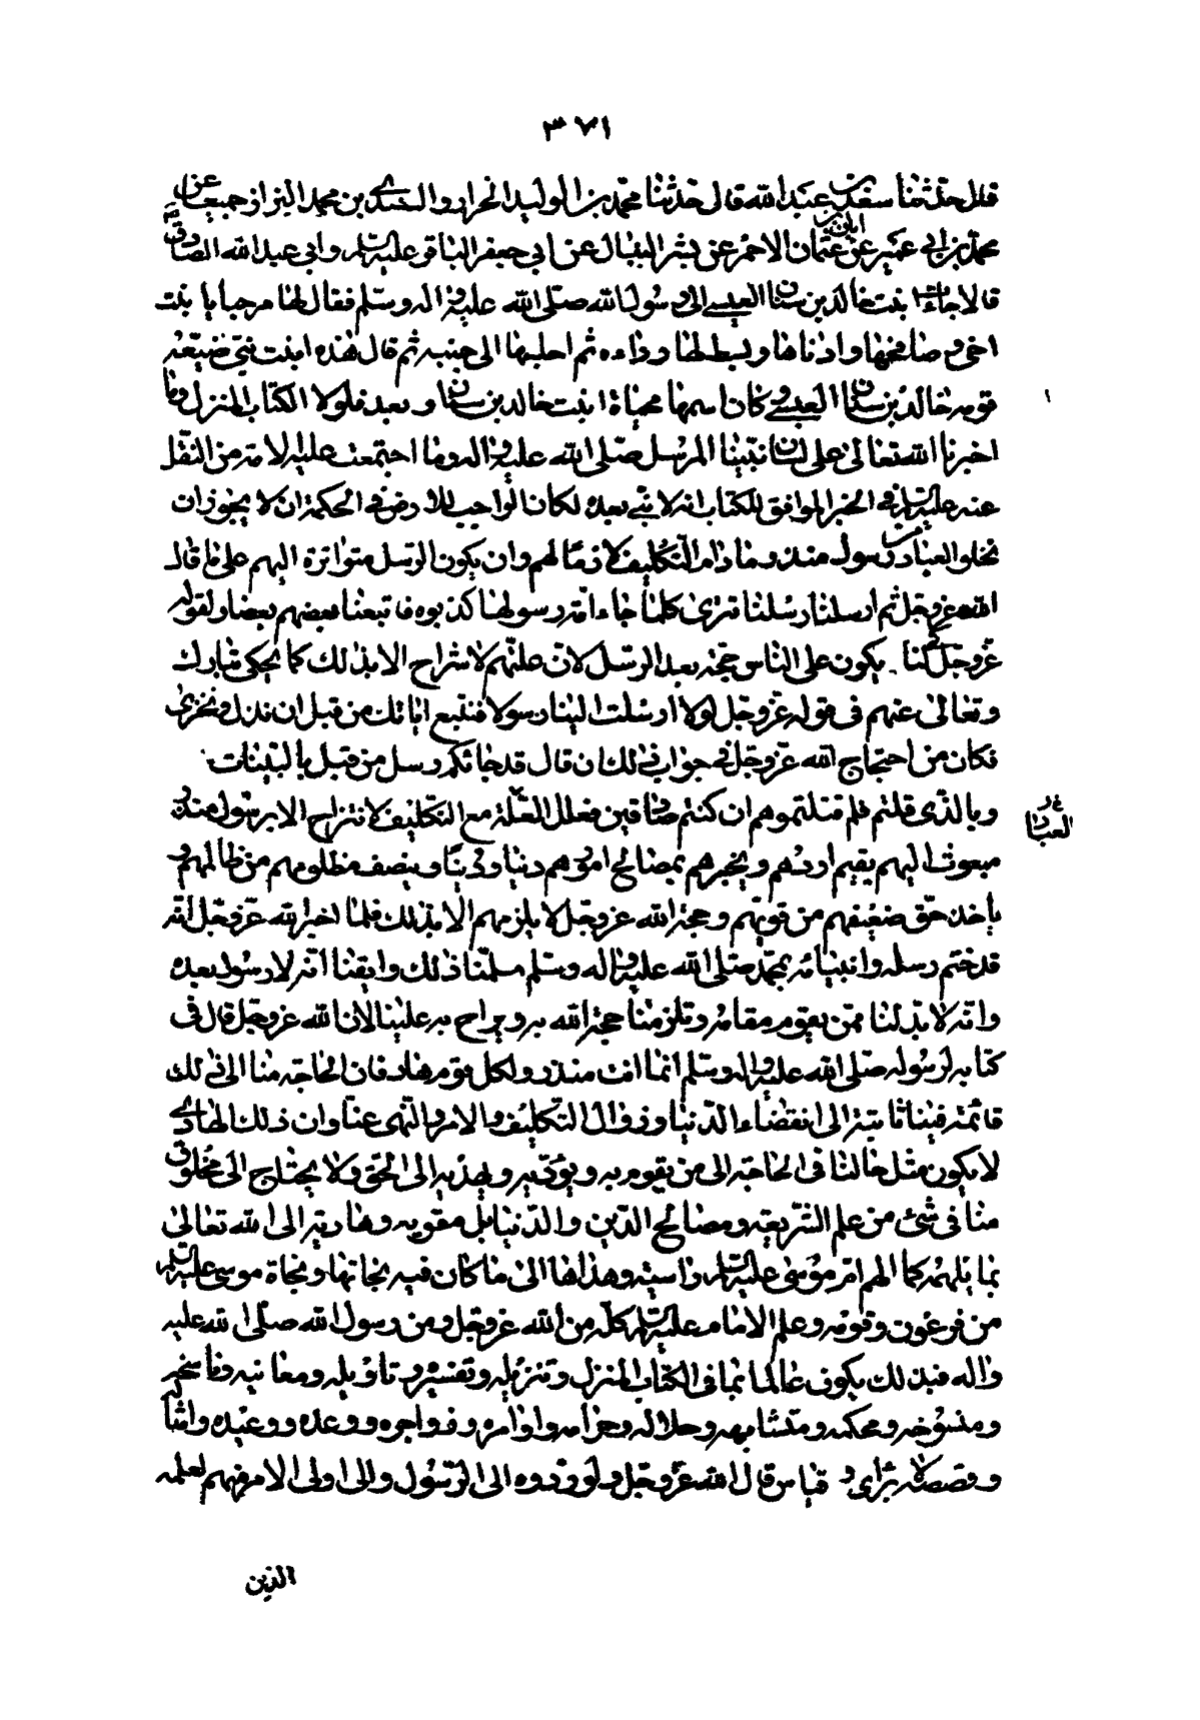 ٣٧١
قال حدثنا سعد بن عبد الله قال حدثنا محمد بن الوليد الخزاز والسندى بن محمد البزاز جميعا عن
محمد بن ابى عمير عن ابان بن عثمان الاحمر عن بشير النبال عن ابى جعفر الباقر عليه السلم وابى عبد الله الصادق
قالا جاءت ابنت خالد بن سنان العبسى الى رسول الله صلى الله عليه واله وسلم فقال لها مرحبا يا بنت
اخى وصافحها وادناها وبسط لها رداءه ثم اجلسها الى جنبه ثم قال هذه ابنت نبى ضيعه
قومه خالد بن سنان العبسى وكان اسمها محياة ابنت خالد بن سنان وبعد فلولا الكتاب المنزل وما
اخبرنا الله تعالى على لسان نبينا المرسل صلى الله عليه واله وما اجتمعت عليه الامة من النقل
عنه عليه السلم فى الخبر الموافق للكتاب انه لا نبى بعده لكان الواجب فى الحكمة ان لا يجوز ان
تخلو العباد من رسول منذر ما دام التكليف لازما لهم وان يكون الرسل متواترة اليهم على ما قال
الله عز وجل ثم ارسلنا رسلنا تترى كلما جاء امة رسولها كذبوه فاتبعنا بعضهم بعضا ولقوله
عز وجل لكيلا يكون على الناس حجة بعد الرسل لان علتهم لا تنزاح الا بذلك كما حكى تبارك
وتعالى عنهم فى قوله عز وجل لولا ارسلت الينا رسولا فنتبع اياتك من قبل ان نذل ونخزى
فكان من احتجاج الله عز وجل فى جواب ذلك ان قال قد جائكم رسل من قبل بالبينات
وبالذى قلتم فلم قتلتموهم ان كنتم صادقين فعلل العباد مع التكليف لا تنزاح الا برسول منذر
مبعوث اليهم يقيم اودهم ويخبرهم بمصالح امورهم دنيا ودينا وينصف مظلومهم من ظالمهم و
ياخذ حق ضعيفهم من قويهم وحجة الله عز وجل لا يلزمهم الا بذلك فلما اخبر الله عز وجل انه
قد ختم رسله وانبيائه بمحمد صلى الله عليه واله وسلم سلمنا ذلك وايقنا انه لا رسول بعده
وانه لا بد لنا ممن يقوم مقامه وتلزمنا حجة الله به ويزاح به علينا لان الله عز وجل قال فى
كتابه لرسوله صلى الله عليه واله وسلم انما انت منذر ولكل قوم هاد فان الحاجة منا الى ذلك
قائمة فينا ثابتة الى انقضاء الدنيا وزوال التكليف والامر والنهى عنا وان ذلك الهادى
لا يكون مثل حالنا فى الحاجة الى من يقومه ويؤدبه ويهديه الى الحق ولا يحتاج الى مخلوق
منا فى شئ من علم الشريعة ومصالح الدين والدنيا بل مقومه وهاديه الى الله تعالى
بما يلهمه كما الهم ام موسى عليه السلم واسيته وهداها الى ما كان فيه نجاتها ونجاة موسى عليه السلم
من فرعون وقومه وعلم الامام عليه السلم كله من الله عز وجل ومن رسول الله صلى الله عليه
واله فبذلك يكون عالما بما فى الكتاب المنزل وتنزيله وتفسيره وتاويله ومعانيه وناسخه
ومنسوخه ومحكمه ومتشابهه وحلاله وحرامه واوامره وزواجره ووعده ووعيده وامثاله
وقصصه لا براى و قياس قال الله عز وجل ولو ردوه الى الرسول والى اولى الامر منهم لعلمه
الذين
العباد